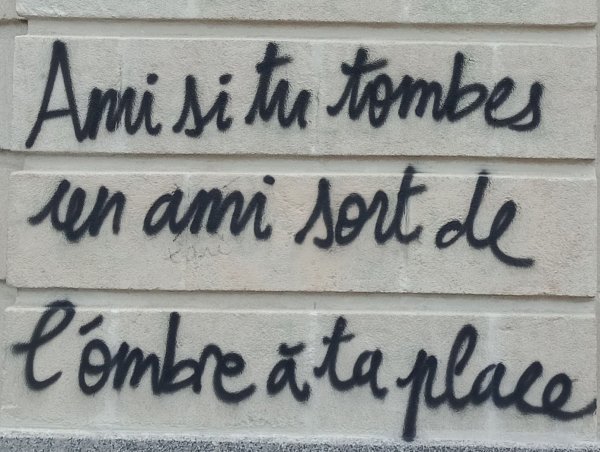 Ami si tu tombes
un ami sort de
l'ombre à ta place